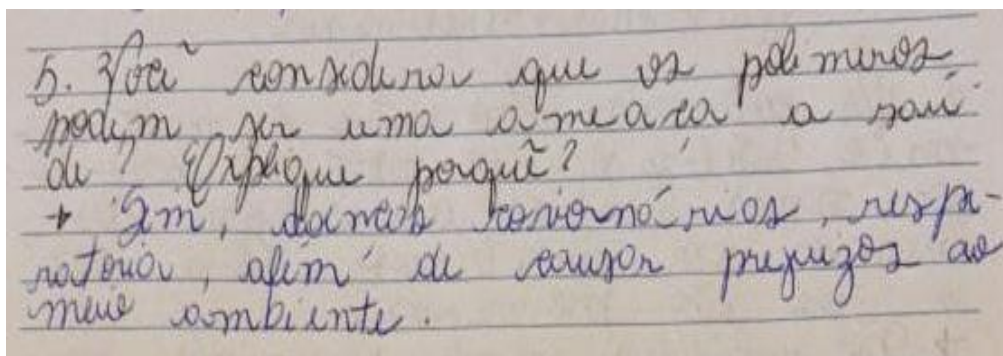 5. Você considera que os polímeros
podem ser uma ameaça a saú-
de? Explique porquê?
→ Sim, doenças coronários, respi-
ratória, além de causar prejuízos ao
meio ambiente.